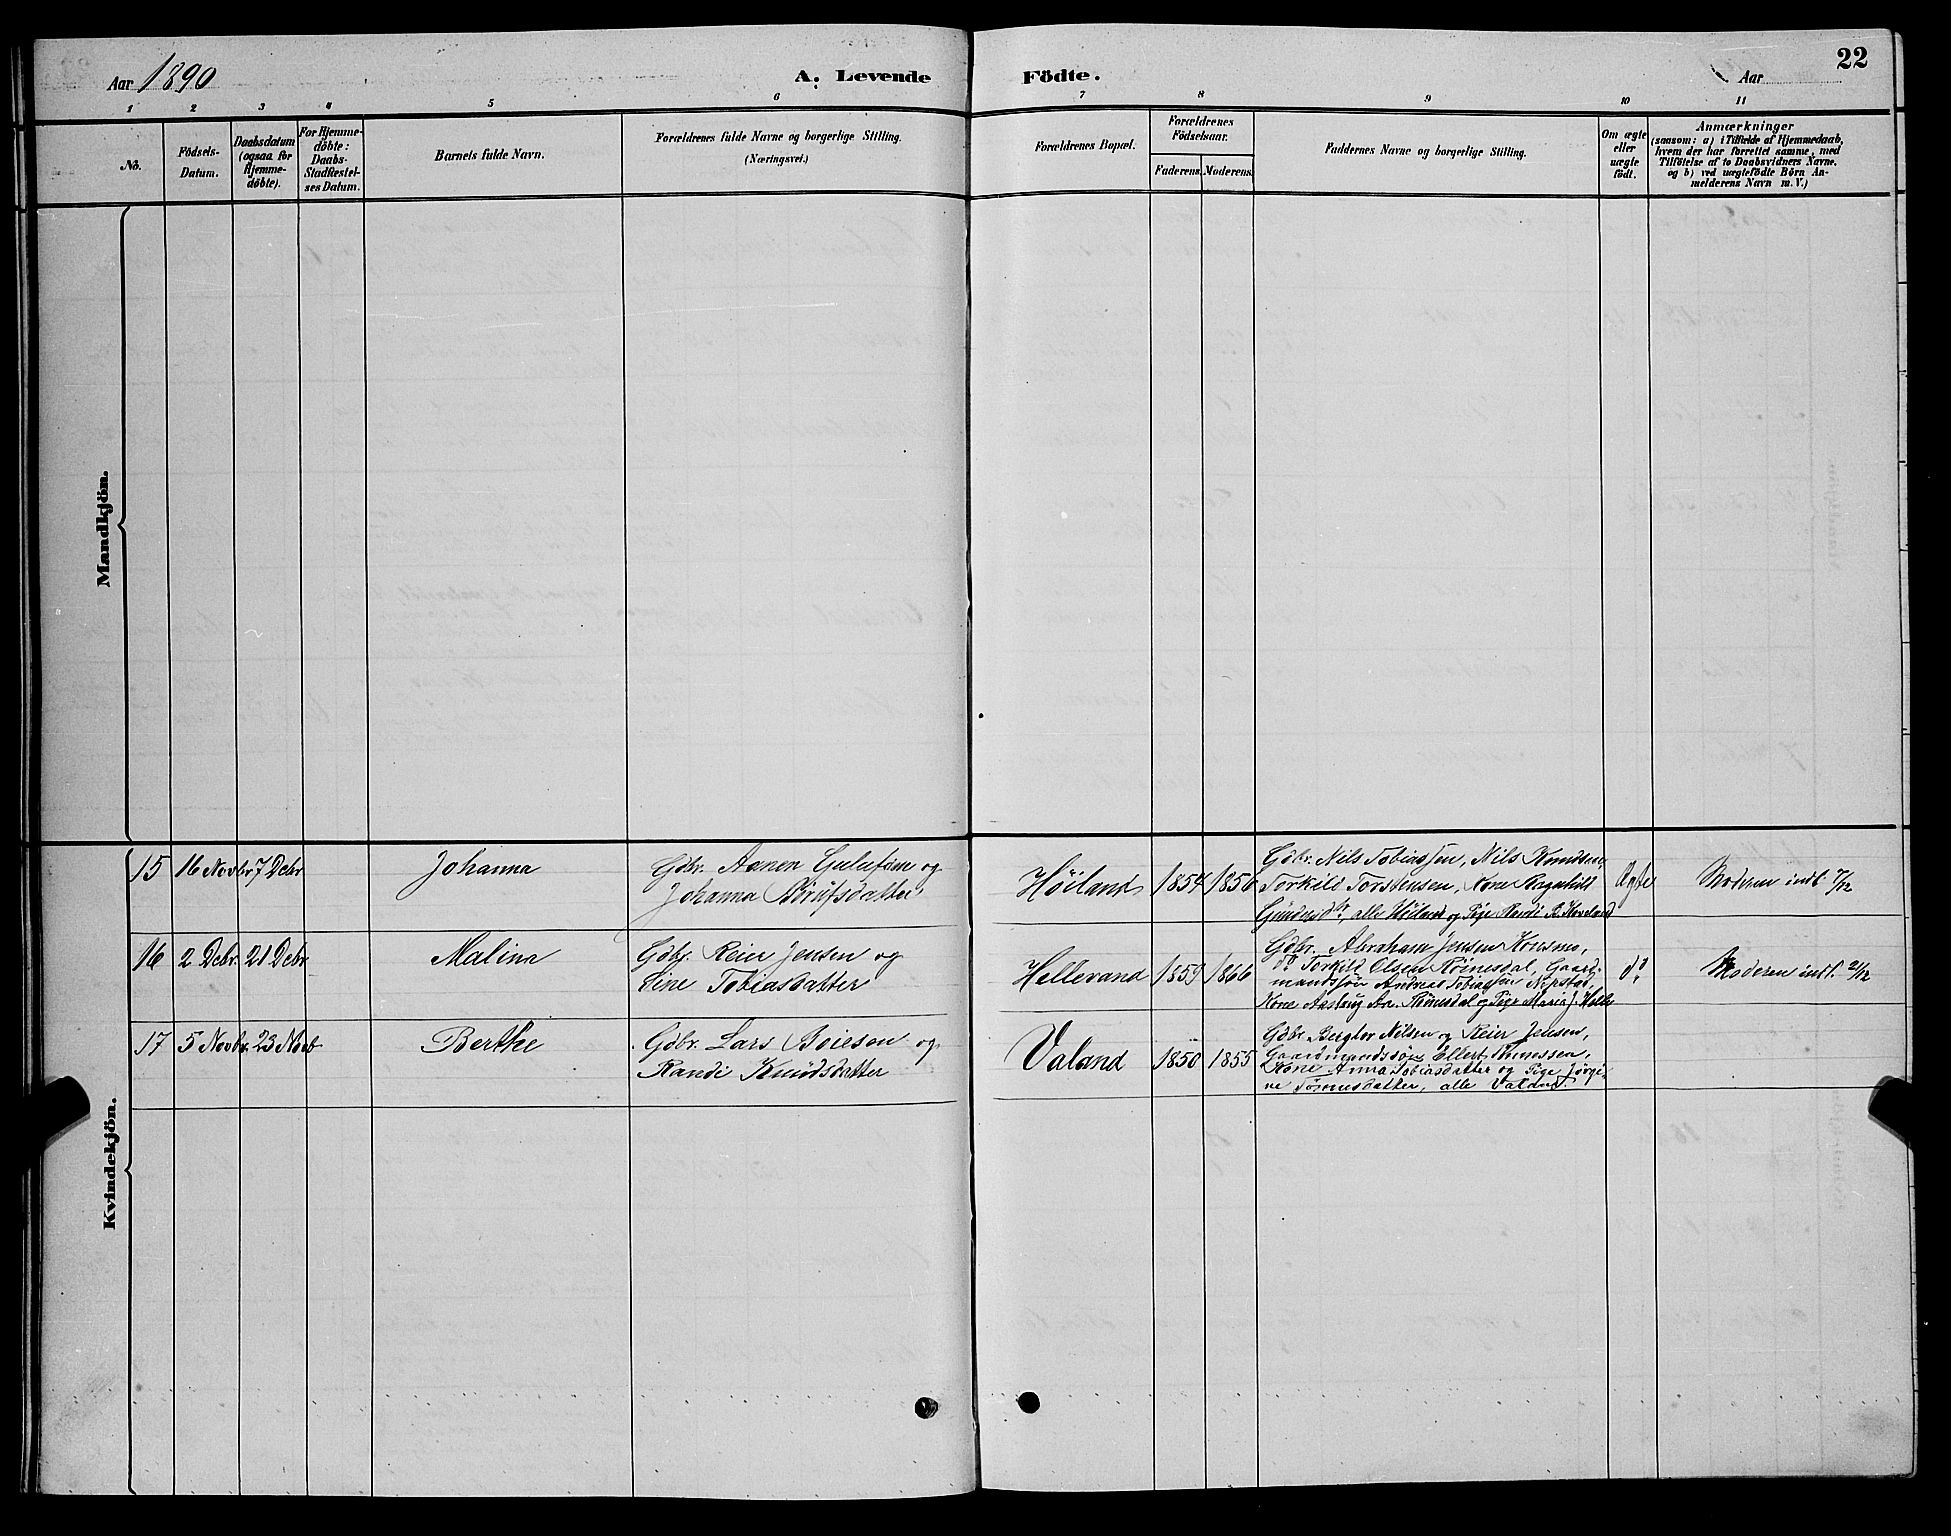 Aar 1890
A. Levende Födte.
Aar
22
1 2 3 4 5 6 7 8 9 10 11
No.
Födsels-
Datum.
Daabsdatum
(ogsaa for
Hjemme-
döbte).
For Hjemme-
döbte:
Daabs-
Stadfæstel-
ses Datum.
Barnets fulde Navn.
Forældrenes fulde Navne og borgerlige Stilling.
(Næringsvei.)
Forældrenes Bopæl.
Forældrenes
Födselsaar.
Faderens. Moderens.
Faddernes Navne og borgerlige Stilling.
Om ægte
eller
uægte
födt.
Anmærkninger
(saasom: a) i Tilfælde af Hjemmedaab,
hvem der har forrettet samme, med
Tilföielse af to Daabsvidners Navne.
og b) ved uægtefödte Börn An-
melderens Navn m. V.)
Mandkjön.
Kvindekjön.
15 16 Novbr 7 Debr Johanna
Gdbr. Aanen og
Johanna
Höiland 1854 1850
Gdbr. Nils Tobiassen, Nils Knudsen,
Torkild Torstensen, Kone Ragnhild
alle Höiland og Pige Randi B. Hoveland
Ægte
Moderen indl. 7/12
16 2 Debr. 21 Debr Malina
Gdbr. Reier Jensen og
Sine Tobiasdatter
Hellevand 1859 1866
Gdbr. Abraham Jensen Konsmo,
do Torkild Olsen Gaard-
mandssön Andreas Tobiassen
Kone og Pige Maria J. Helle
do
Moderen indl. 21/12
17 5 Novbr. 23 Novb Berthe
Gdbr. Lars Boiesen og
Randi Knudsdatter
Valand 1850 1855
Gdbr. Bergtor Nilsen og Reier Jensen,
Gaardmandssön Ellert
Kone Anna Tobiasdatter og Pige Jörgi-
ne alle Valand